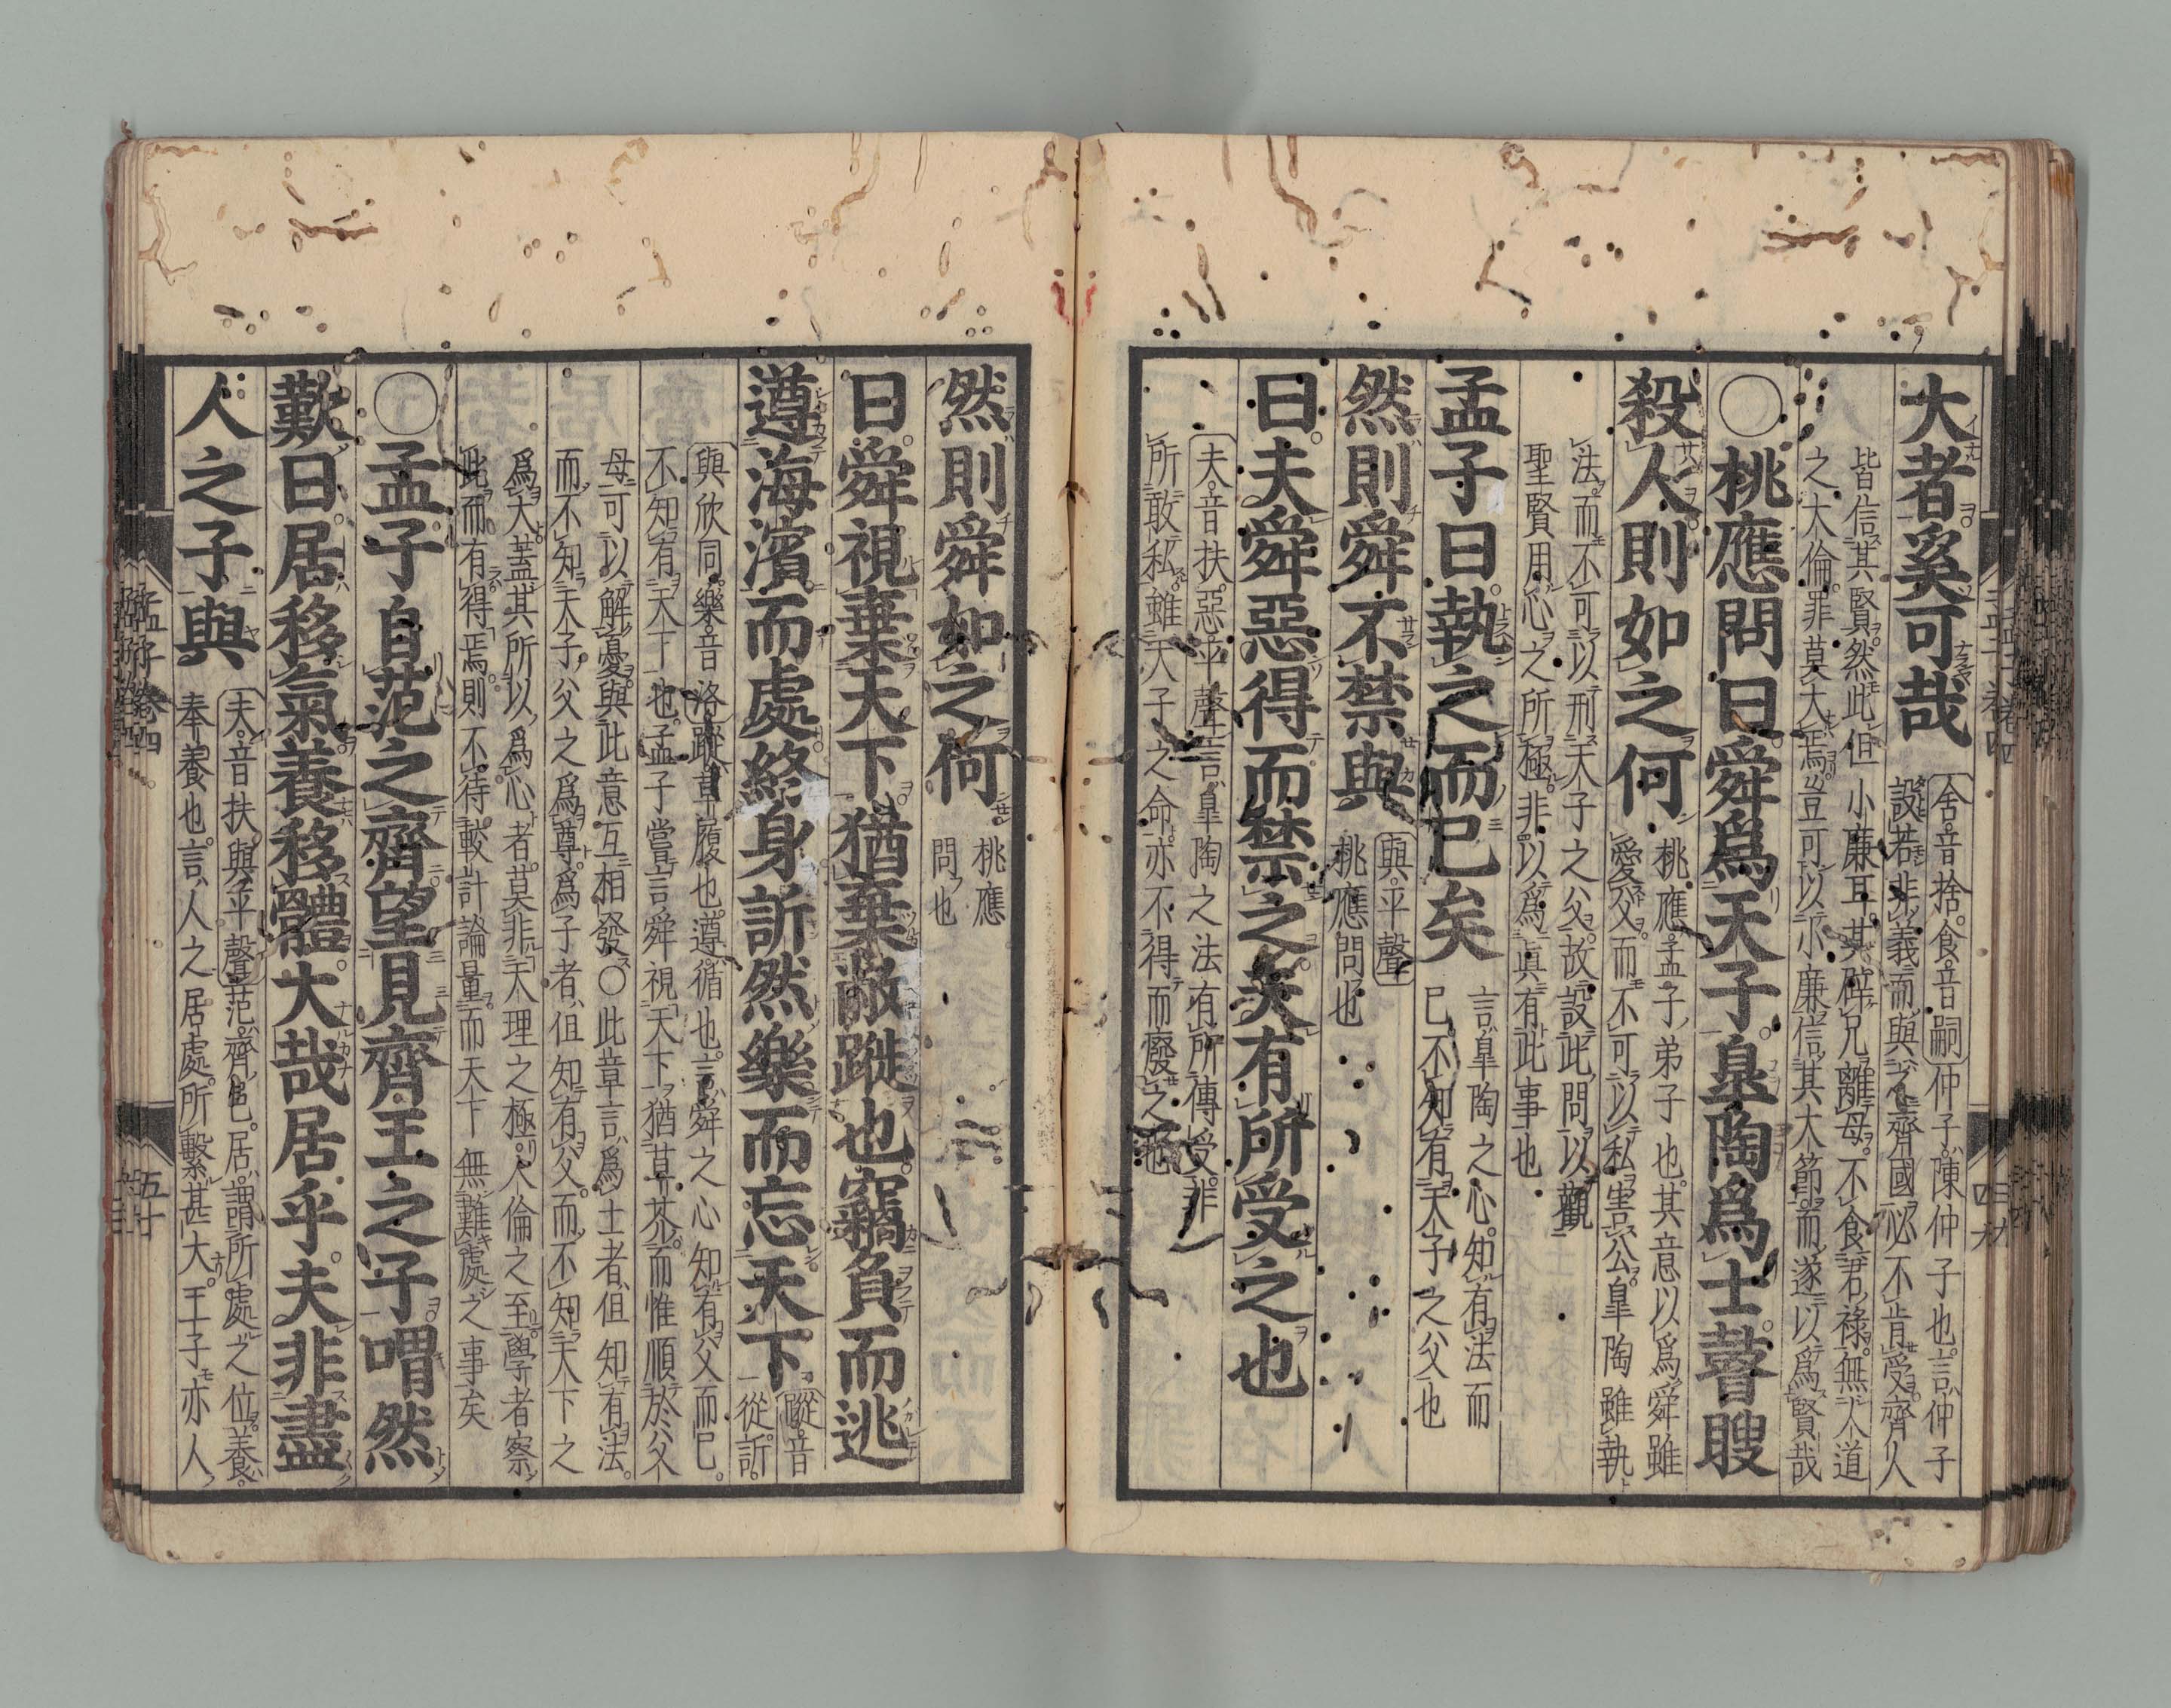 大者奚可哉
舍音捨食音嗣仲子陳仲子也言仲子
設若非義而與之齊國必不肯受齊人
皆信其賢然此但小廉耳其辟兄離母不食君祿無人道
之大倫罪莫大焉豈可以小廉信其大節而遂以爲賢哉
〇桃應問曰舜爲天子皐陶爲士瞽瞍
殺人則如之何
桃應孟子弟子也其意以爲舜雖
愛父而不可以私害公皐陶雖執
法而不可以刑天子之父故設此問以觀
聖賢用心之所極非以爲眞有此事也
孟子曰執之而已矣
言皐陶之心知有法而
已不知有天子之父也
然則舜不禁與
與平聲
桃應問也
曰夫舜惡得而禁之夫有所受之也
夫音扶惡平聲言皐陶之法有所傳受非
所敢私雖天子之命亦不得而廢之也
然則舜如之何
桃應
問也
曰舜視棄天下猶棄敝蹝也竊負而逃
遵海濱而處終身訢然樂而忘天下
蹝音
從訢
與欣同樂音洛蹝草履也遵循也言舜之心知有父而已
不知有天下也孟子嘗言舜視天下猶草芥而惟順於父
母可以解憂與此意互相發〇此章言爲士者但知有法
而不知天子父之爲尊爲子者但知有父而不知天下之
爲大蓋其所以爲心者莫非天理之極人倫之至學者察
此而有得焉則不待較計論量而天下無難處之事矣
〇孟子自范之齊望見齊王之子喟然
歎曰居移氣養移體大哉居乎夫非盡
人之子與
夫音扶與平聲范齊邑居謂所處之位養
奉養也言人之居處所繫甚大王子亦人
孟子卷四
五十